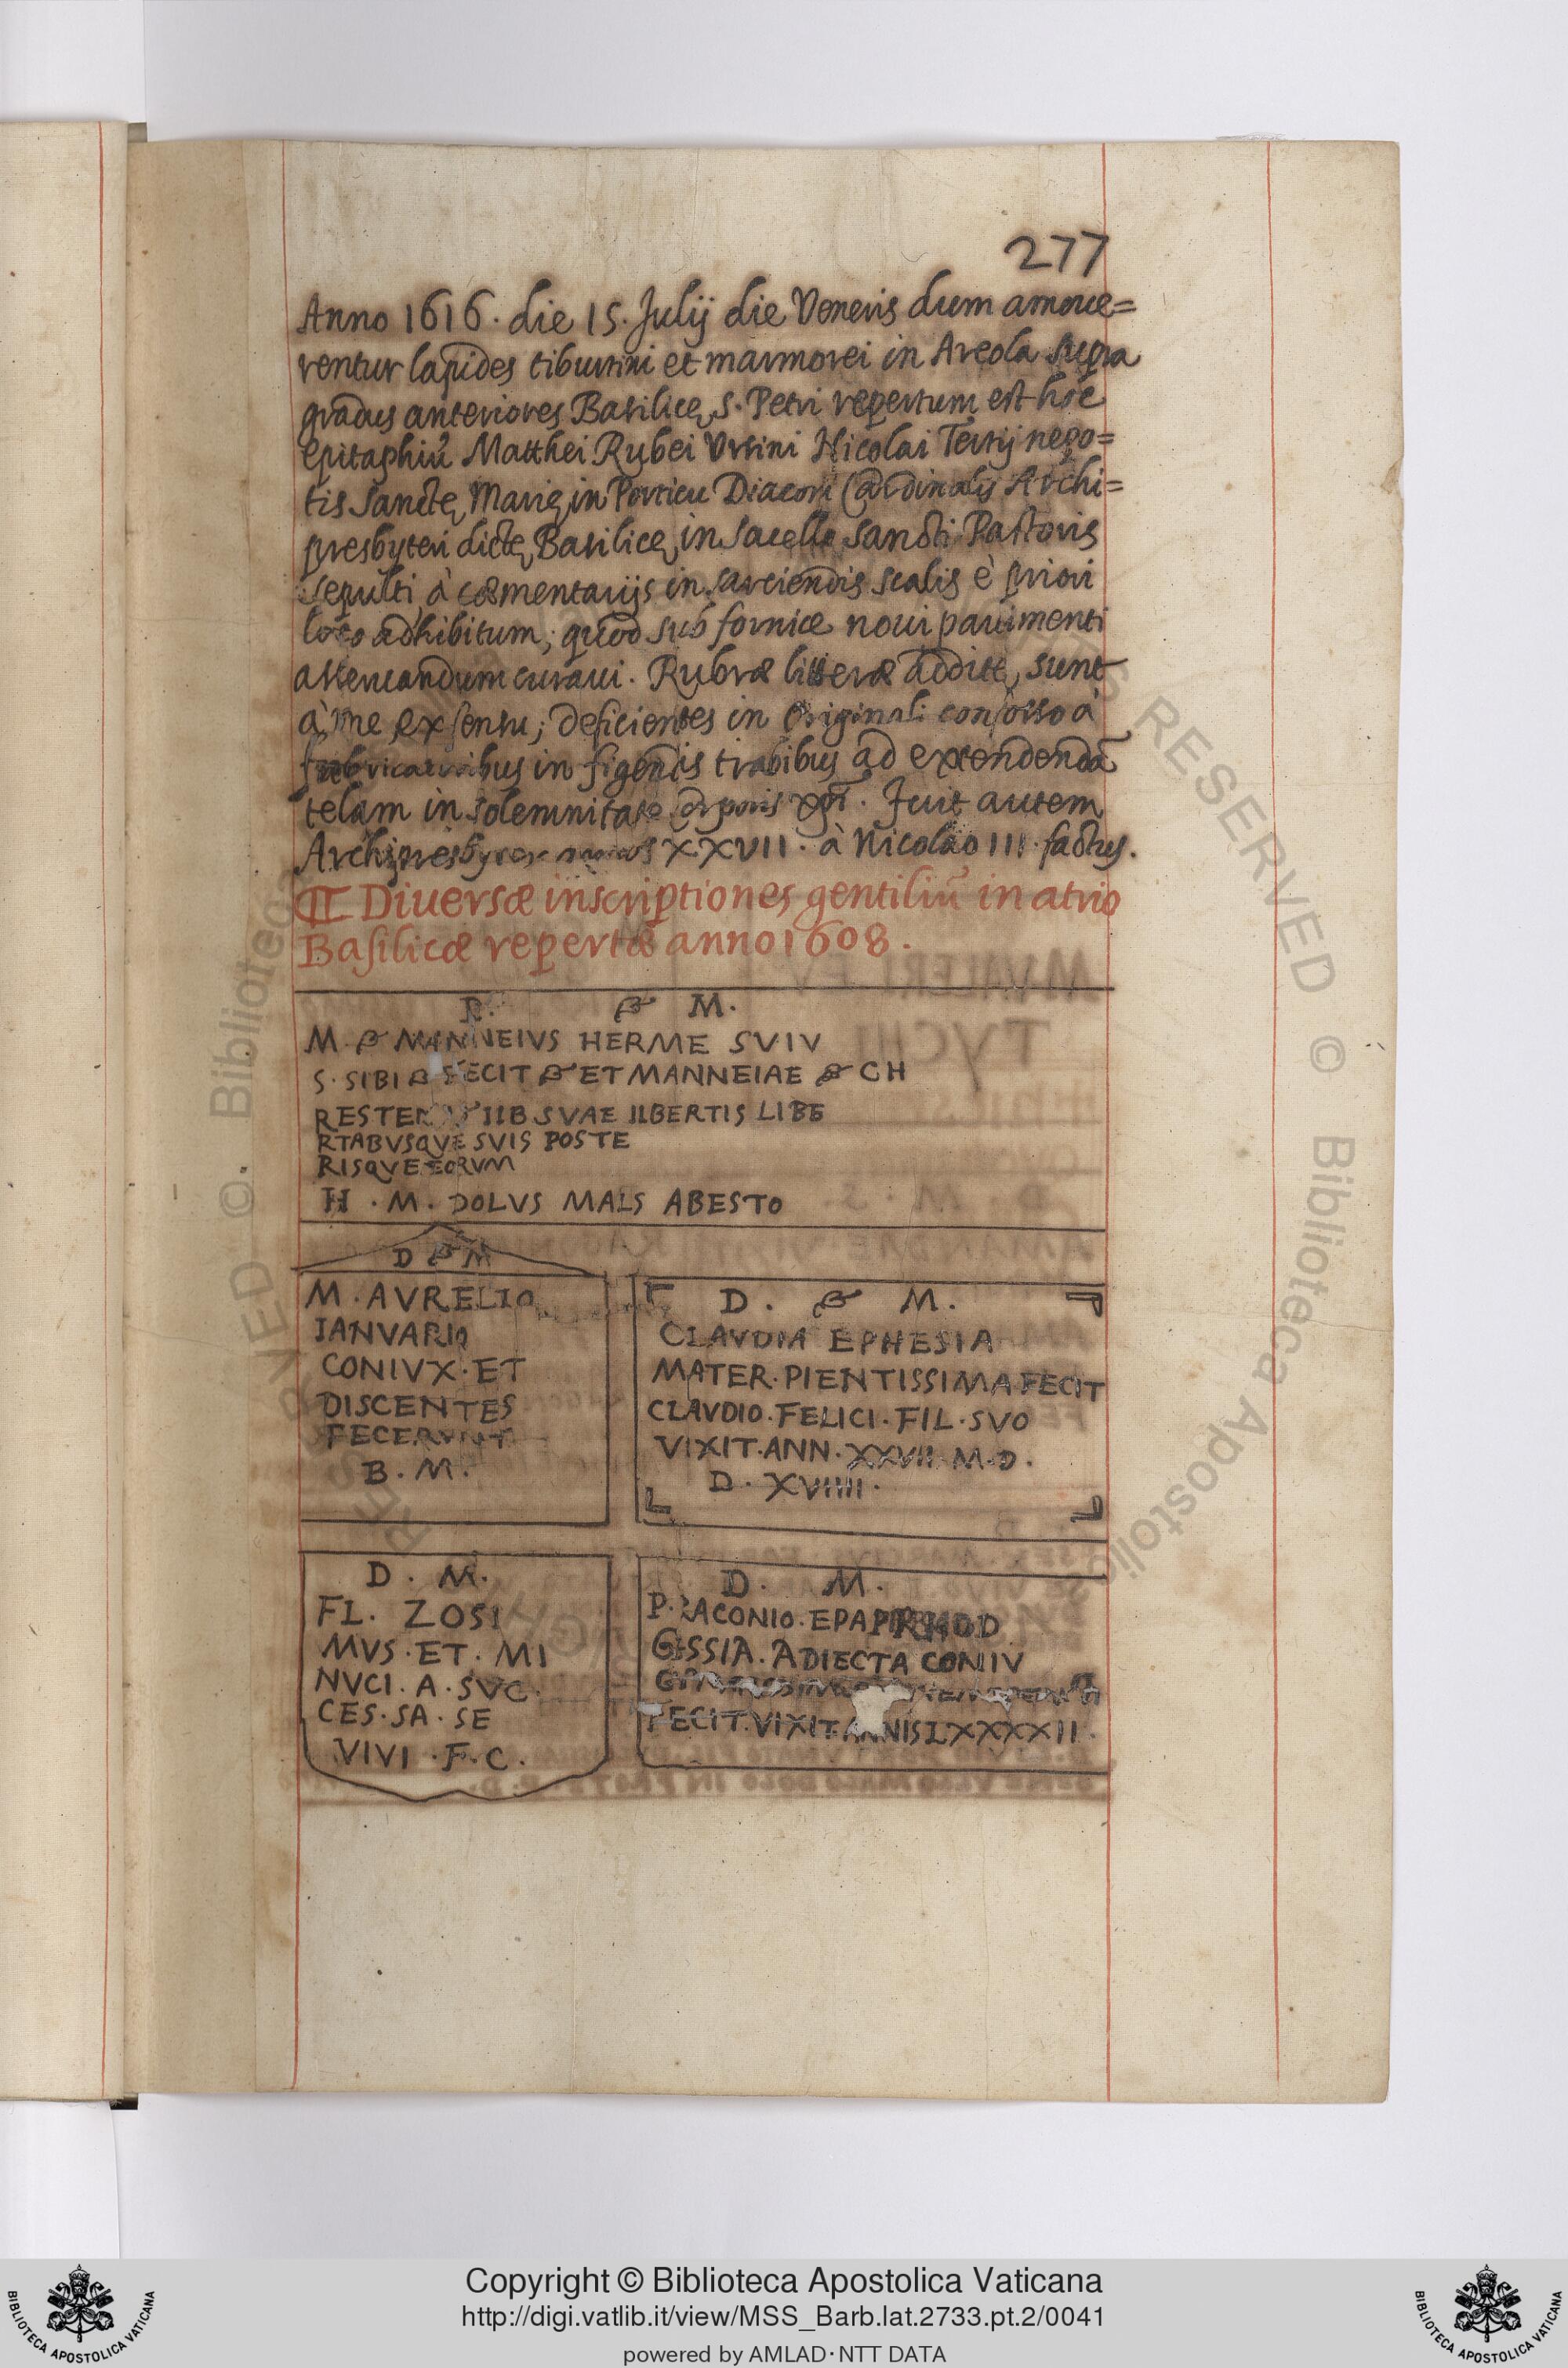 277
Anno 1616. die 15. Julij die Veneris dum amoue=
rentur lapides tiburtini et marmorei in Areola supra
gradus anteriores Basilicę S. Petri repertum est hoc
epitaphiũ Matthei Rubei Vrsini Nicolai Tertij nepo=
tis Sanctę Marię in Porticu Diaconi Cardinalis Archi=
presbyteri dictę Basilicę in sacello Sancti Pastoris
sepulti, à cœmentarijs in sarciendis scalis è priori
loco adhibitum; quod sub fornice noui pauimenti
asseruandum curaui. Rubræ litteræ additę sunt
à me ex sensu; deficientes in Originali confosso à
fabricatoribus in figendis trabibus ad extendendã
telam in solemnitate Corporis xpĩ. Fuit autem
Archipresbyter annos XXVII. à Nicolao III. factus.
Diuersæ inscriptiones gentiliũ in atrio
Basilicæ repertæ anno 1608.
D. M.
M. MANNEIVS HERME SVIV
S. SIBI FECIT ET MANNEIAE CH
RESTE IIB SVAE IIBERTIS LIBE
RTABVSQVE SVIS POSTE
RISQVE EORVM
H. M. DOLVS MALS ABESTO
D M
M. AVRELIO
IANVARIO
CONIVX. ET
DISCENTES
FECERVNT
B. M.
D. M.
CLAVDIA EPHESIA
MATER. PIENTISSIMA FECIT
CLAVDIO. FELICI. FIL. SVO
VIXIT. ANN. XXVII. M. D.
D. XVIIII.
D. M.
FL. ZOSI
MVS. ET. MI
NVCI. A. SVC
CES. SA. SE
VIVI. F. C.
D. M.
P. RACONIO.
ADIECTA CONIV
FECIT. VIXIT ANNIS LXXXXII.
Copyright © Biblioteca Apostolica Vaticana
http://digi.vatlib.it/view/MSS_Barb.lat.2733.pt.2/0041
powered by AMLAD·NTT DATA
BIBLIOTECA APOSTOLICA VATICANA
BIBLIOTECA APOSTOLICA VATICANA